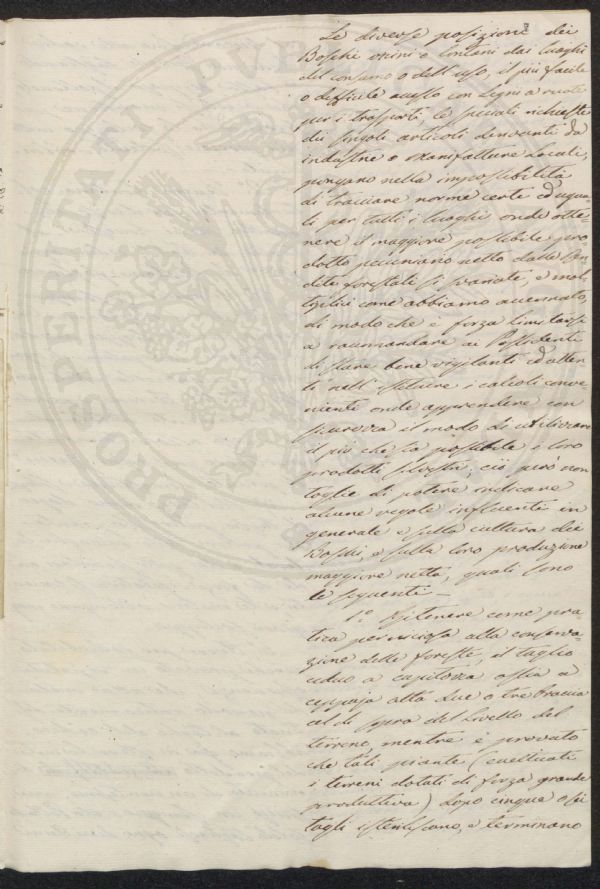 Le diverse posizioni dei
Boschi vicini o lontani dai luoghi
del consumo o dell'uso, il più facile
o difficile accesso con legni a ruote
per i trasporti, le speciali richieste
dei singoli articoli derivanti da
industrie o manifatture locali,
pongano nella impossibilità
di tracciare norme certe ed egua-
li per tutti i luoghi onde otte-
nere il maggiore possibile pro-
dotto pecuniario netto dalle ren-
dite forestali sì svariate, e mol-
tiplici come abbiamo accennato,
di modo che è forza limitarsi
a raccomandare ai Possidenti
di stare bene vigilanti ed atten-
ti nell'istituire i calcoli conve-
nienti onde apprendere con
sicurezza il modo di utilizzare
il più che sia possibile i loro
prodotti silvestri; ciò però non
toglie di potere indicare
alcune regole influenti in
generale e sulla cultura dei
Boschi, e sulla loro produzione
maggiore netta, quali sono
le seguenti –
1.o Ritenere come pra-
tica perniciosa alla conserva-
zione delle foreste, il taglio
ceduo a capitozza ossia a
ceppaja alta due o tre braccia
al di sopra del livello del
terreno, mentre è provato
che tali piante (eccettuati
i terreni dotati di forza grande
produttiva) dopo cinque o sei
tagli isteriliscono, e terminano
PROSPERITATI PVBL